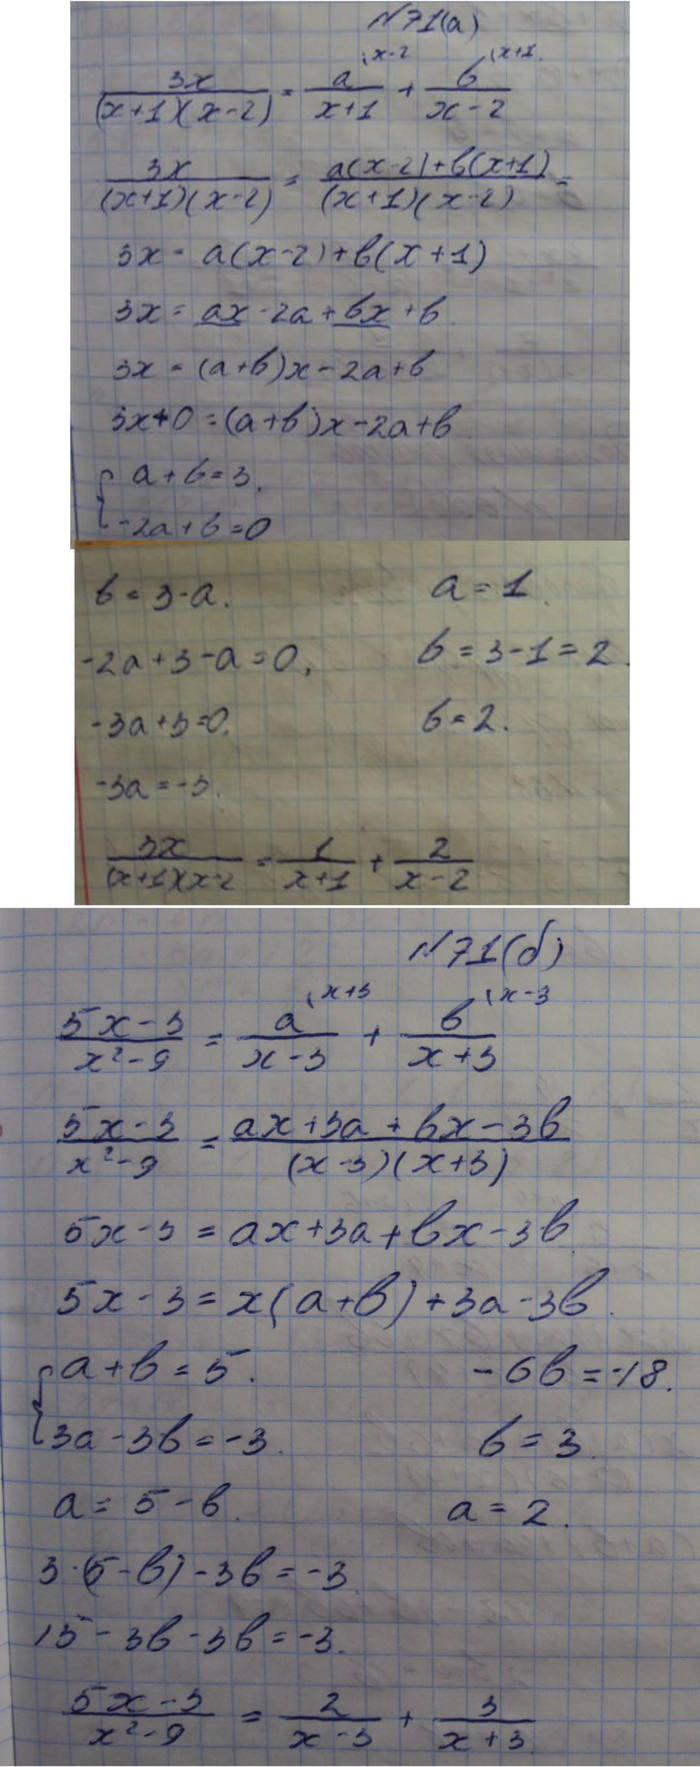 №71(а)
3x/((x+1)(x-2)) = a/(x+1) \x-2 + b/(x-2) \x+1
3x/((x+1)(x-2)) = (a(x-2)+b(x+1))/((x+1)(x-2)) =
3x = a(x-2)+b(x+1)
3x = ax-2a+bx+b.
3x = (a+b)x-2a+b
3x+0 = (a+b)x-2a+b
{ a+b=3.
-2a+b=0
b = 3-a. a = 1.
-2a+3-a=0. b = 3-1=2.
-3a+3=0. b = 2.
-3a=-3.
3x/((x+1)(x-2) = 1/(x+1) + 2/(x-2)
№71(б)
(5x-3)/(x²-9) = a/(x-3) \x+3 + b/(x+3) \x-3
(5x-3)/(x²-9) = (ax+3a+bx-3b)/((x-3)(x+3))
5x-3 = ax+3a+bx-3b.
5x-3 = x(a+b)+3a-3b.
{ a+b=5. -6b=-18.
3a-3b=-3. b=3.
a=5-b. a=2.
3·(5-b)-3b=-3.
15-3b-3b=-3.
(5x-3)/(x²-9) = 2/(x-3) + 3/(x+3)